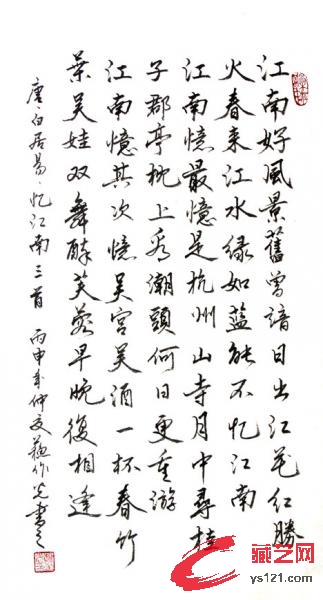 江南好風景舊曾諳日出江花红勝
火春来江水绿如蓝能不忆江南
江南憶最憶是杭州山寺月中尋桂
子郡亭枕上看潮頭何日更重游
江南憶其次憶吴宫吴酒一杯春竹
葉吴娃双舞醉芙蓉早晚復相逢
唐·白居易·忆江南三首 丙申年仲夏蘇作光書之
藏艺网
ys121.com